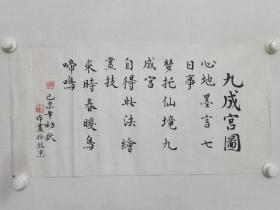 九成宫圖
心地墨言七
日事
梦托仙境九
成宫
自得此法繪
畫技
来時春暖鳥
啼鳴
己亥年初秋
作畫於北京